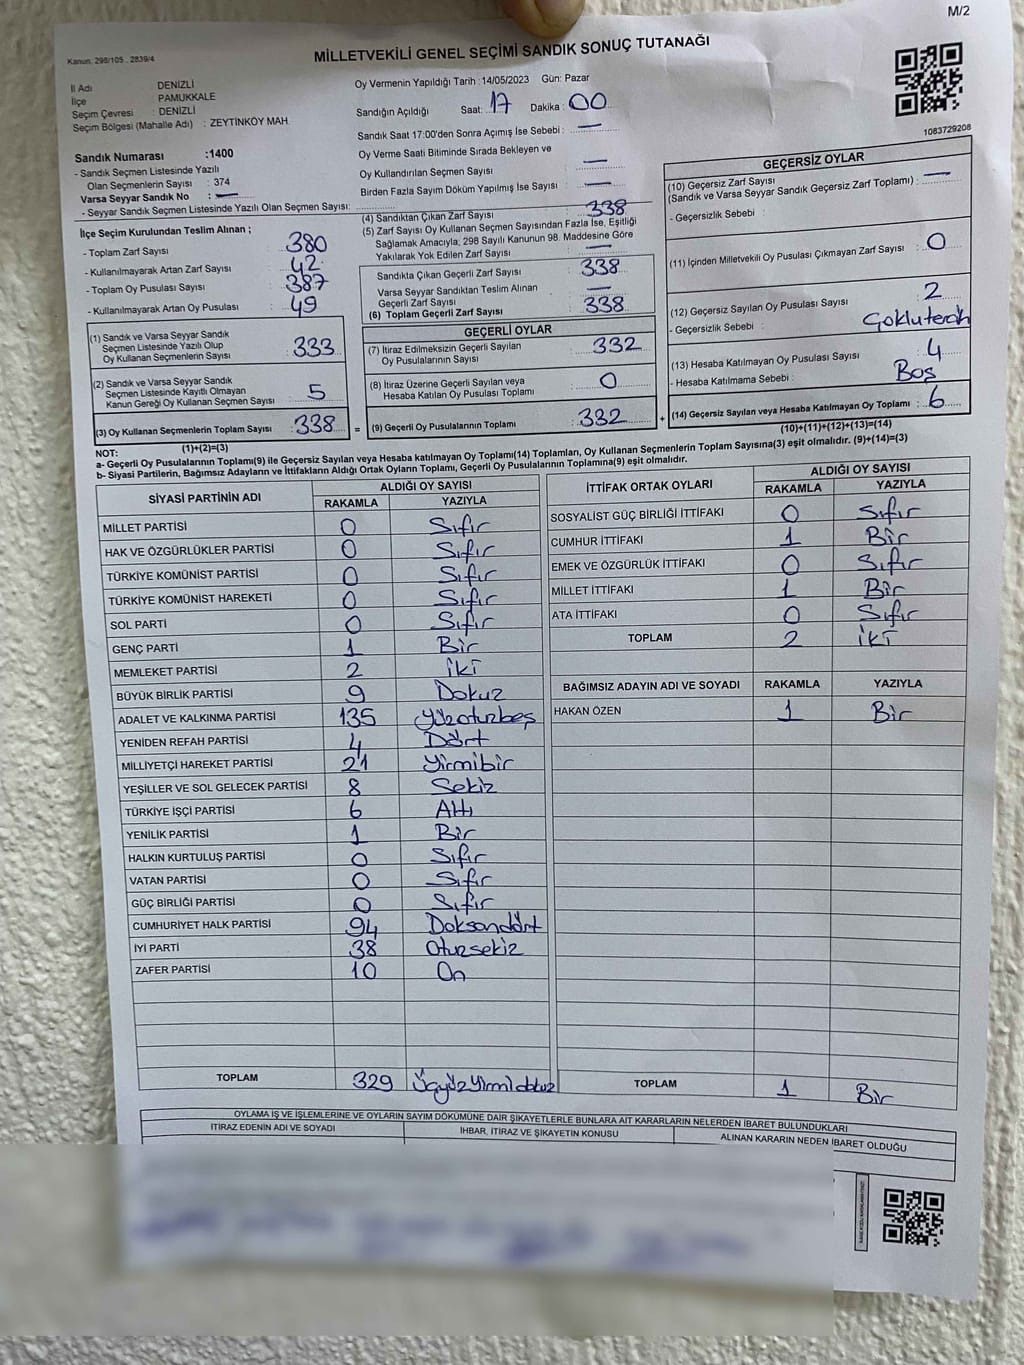 M/2
Kanun: 298/105 , 2839/4
MİLLETVEKİLİ GENEL SEÇİMİ SANDIK SONUÇ TUTANAĞI
İl Adı DENİZLİ
İlçe PAMUKKALE
Seçim Çevresi : DENİZLİ
Seçim Bölgesi (Mahalle Adı) : ZEYTİNKÖY MAH.
Oy Vermenin Yapıldığı Tarih : 14/05/2023 Gün: Pazar
Sandığın Açıldığı Saat: 17 Dakika : 00
Sandık Saat 17:00'den Sonra Açımış İse Sebebi : —
Oy Verme Saati Bitiminde Sırada Bekleyen ve
Oy Kullandırılan Seçmen Sayısı —
Birden Fazla Sayım Döküm Yapılmış İse Sayısı —
1083729208
Sandık Numarası :1400
- Sandık Seçmen Listesinde Yazılı
Olan Seçmenlerin Sayısı : 374
Varsa Seyyar Sandık No : —
- Seyyar Sandık Seçmen Listesinde Yazılı Olan Seçmen Sayısı:
İlçe Seçim Kurulundan Teslim Alınan ;
- Toplam Zarf Sayısı 380
- Kullanılmayarak Artan Zarf Sayısı 42
- Toplam Oy Pusulası Sayısı 387
- Kullanılmayarak Artan Oy Pusulası 49
(1) Sandık ve Varsa Seyyar Sandık
Seçmen Listesinde Yazılı Olup
Oy Kullanan Seçmenlerin Sayısı : 333
(2) Sandık ve Varsa Seyyar Sandık
Seçmen Listesinde Kayıtlı Olmayan
Kanun Gereği Oy Kullanan Seçmen Sayısı : 5
(3) Oy Kullanan Seçmenlerin Toplam Sayısı : 338
(1)+(2)=(3)
(4) Sandıktan Çıkan Zarf Sayısı 338
(5) Zarf Sayısı Oy Kullanan Seçmen Sayısından Fazla İse, Eşitliği
Sağlamak Amacıyla, 298 Sayılı Kanunun 98. Maddesine Göre
Yakılarak Yok Edilen Zarf Sayısı : —
Sandıkta Çıkan Geçerli Zarf Sayısı : 338
Varsa Seyyar Sandıktan Teslim Alınan
Geçerli Zarf Sayısı : —
(6) Toplam Geçerli Zarf Sayısı : 338
GEÇERLİ OYLAR
(7) İtiraz Edilmeksizin Geçerli Sayılan
Oy Pusulalarının Sayısı : 332
(8) İtiraz Üzerine Geçerli Sayılan veya
Hesaba Katılan Oy Pusulası Toplamı : 0
= (9) Geçerli Oy Pusulalarının Toplamı : 332 +
GEÇERSİZ OYLAR
(10) Geçersiz Zarf Sayısı
(Sandık ve Varsa Seyyar Sandık Geçersiz Zarf Toplamı) : —
- Geçersizlik Sebebi :
(11) İçinden Milletvekili Oy Pusulası Çıkmayan Zarf Sayısı : 0
(12) Geçersiz Sayılan Oy Pusulası Sayısı : 2
- Geçersizlik Sebebi : Çokluterah
(13) Hesaba Katılmayan Oy Pusulası Sayısı : 4
- Hesaba Katılmama Sebebi : Boş
(14) Geçersiz Sayılan veya Hesaba Katılmayan Oy Toplamı : 6
(10)+(11)+(12)+(13)=(14)
NOT:
a- Geçerli Oy Pusulalarının Toplamı(9) ile Geçersiz Sayılan veya Hesaba katılmayan Oy Toplamı(14) Toplamları, Oy Kullanan Seçmenlerin Toplam Sayısına(3) eşit olmalıdır. (9)+(14)=(3)
b- Siyasi Partilerin, Bağımsız Adayların ve İttifakların Aldığı Ortak Oyların Toplamı, Geçerli Oy Pusulalarının Toplamına(9) eşit olmalıdır.
SİYASİ PARTİNİN ADI ALDIĞI OY SAYISI
RAKAMLA YAZIYLA
MİLLET PARTİSİ 0 Sıfır
HAK VE ÖZGÜRLÜKLER PARTİSİ 0 Sıfır
TÜRKİYE KOMÜNİST PARTİSİ 0 Sıfır
TÜRKİYE KOMÜNİST HAREKETİ 0 Sıfır
SOL PARTİ 0 Sıfır
GENÇ PARTİ 1 Bir
MEMLEKET PARTİSİ 2 iki
BÜYÜK BİRLİK PARTİSİ 9 Dokuz
ADALET VE KALKINMA PARTİSİ 135 Yüzoturbeş
YENİDEN REFAH PARTİSİ 4 Dört
MİLLİYETÇİ HAREKET PARTİSİ 21 Yirmibir
YEŞİLLER VE SOL GELECEK PARTİSİ 8 Sekiz
TÜRKİYE İŞÇİ PARTİSİ 6 Altı
YENİLİK PARTİSİ 1 Bir
HALKIN KURTULUŞ PARTİSİ 0 Sıfır
VATAN PARTİSİ 0 Sıfır
GÜÇ BİRLİĞİ PARTİSİ 0 Sıfır
CUMHURİYET HALK PARTİSİ 94 Doksandört
İYİ PARTİ 38 Oturzsekiz
ZAFER PARTİSİ 10 On
TOPLAM 329 Üçyüzyirmidokuz
İTTİFAK ORTAK OYLARI ALDIĞI OY SAYISI
RAKAMLA YAZIYLA
SOSYALİST GÜÇ BİRLİĞİ İTTİFAKI 0 Sıfır
CUMHUR İTTİFAKI 1 Bir
EMEK VE ÖZGÜRLÜK İTTİFAKI 0 Sıfır
MİLLET İTTİFAKI 1 Bir
ATA İTTİFAKI 0 Sıfır
TOPLAM 2 iki
BAĞIMSIZ ADAYIN ADI VE SOYADI RAKAMLA YAZIYLA
HAKAN ÖZEN 1 Bir
TOPLAM 1 Bir
OYLAMA İŞ VE İŞLEMLERİNE VE OYLARIN SAYIM DÖKÜMÜNE DAİR ŞİKAYETLERLE BUNLARA AİT KARARLARIN NELERDEN İBARET BULUNDUKLARI
İTİRAZ EDENİN ADI VE SOYADI İHBAR, İTİRAZ VE ŞİKAYETİN KONUSU ALINAN KARARIN NEDEN İBARET OLDUĞU